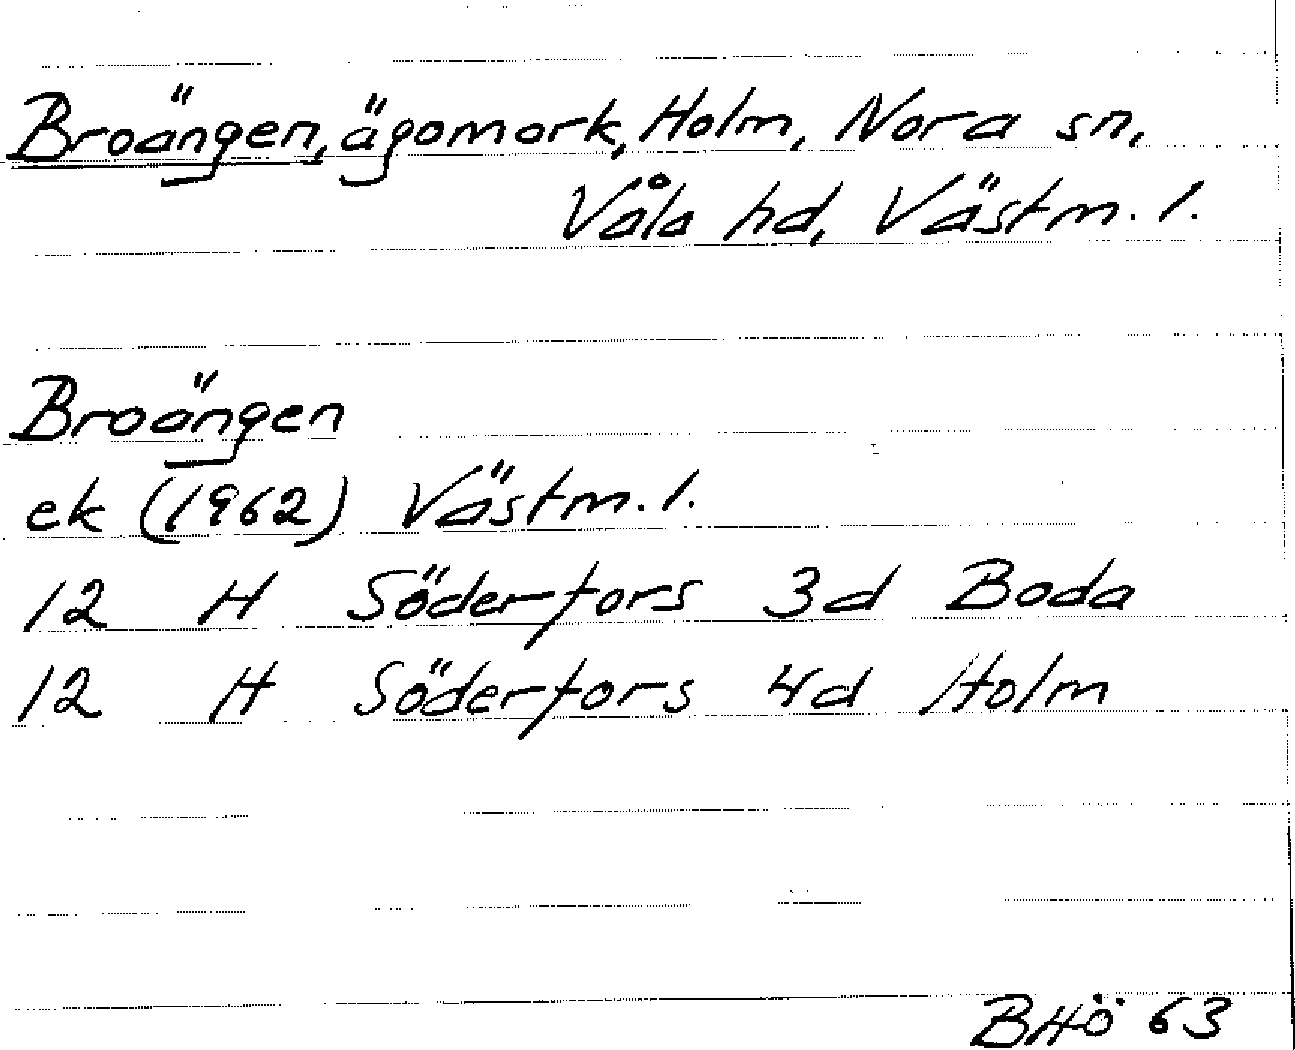 Broängen, ägomark, Holm, Nora sn,
Våla hd, Västm. l.
Broängen
ek (1962) Västm. l.
12 H Söderfors 3d Boda
12 H Söderfors 4d Holm
BHÖ 63